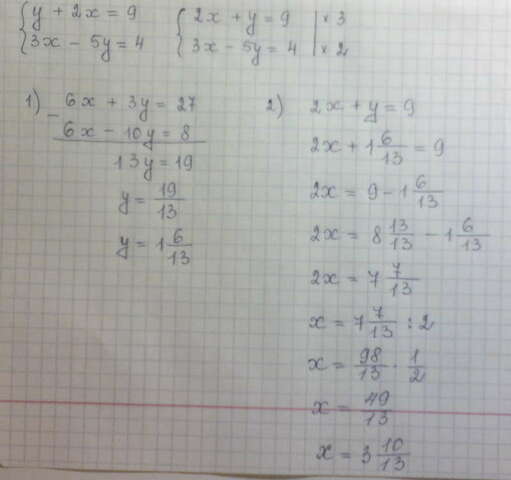 { y + 2x = 9
3x - 5y = 4
{ 2x + y = 9 | × 3
3x - 5y = 4 | × 2
1) - 6x + 3y = 27
6x - 10y = 8
13y = 19
y = 19/13
y = 1 6/13
2) 2x + y = 9
2x + 1 6/13 = 9
2x = 9 - 1 6/13
2x = 8 13/13 - 1 6/13
2x = 7 7/13
x = 7 7/13 : 2
x = 98/13 · 1/2
x = 49/13
x = 3 10/13